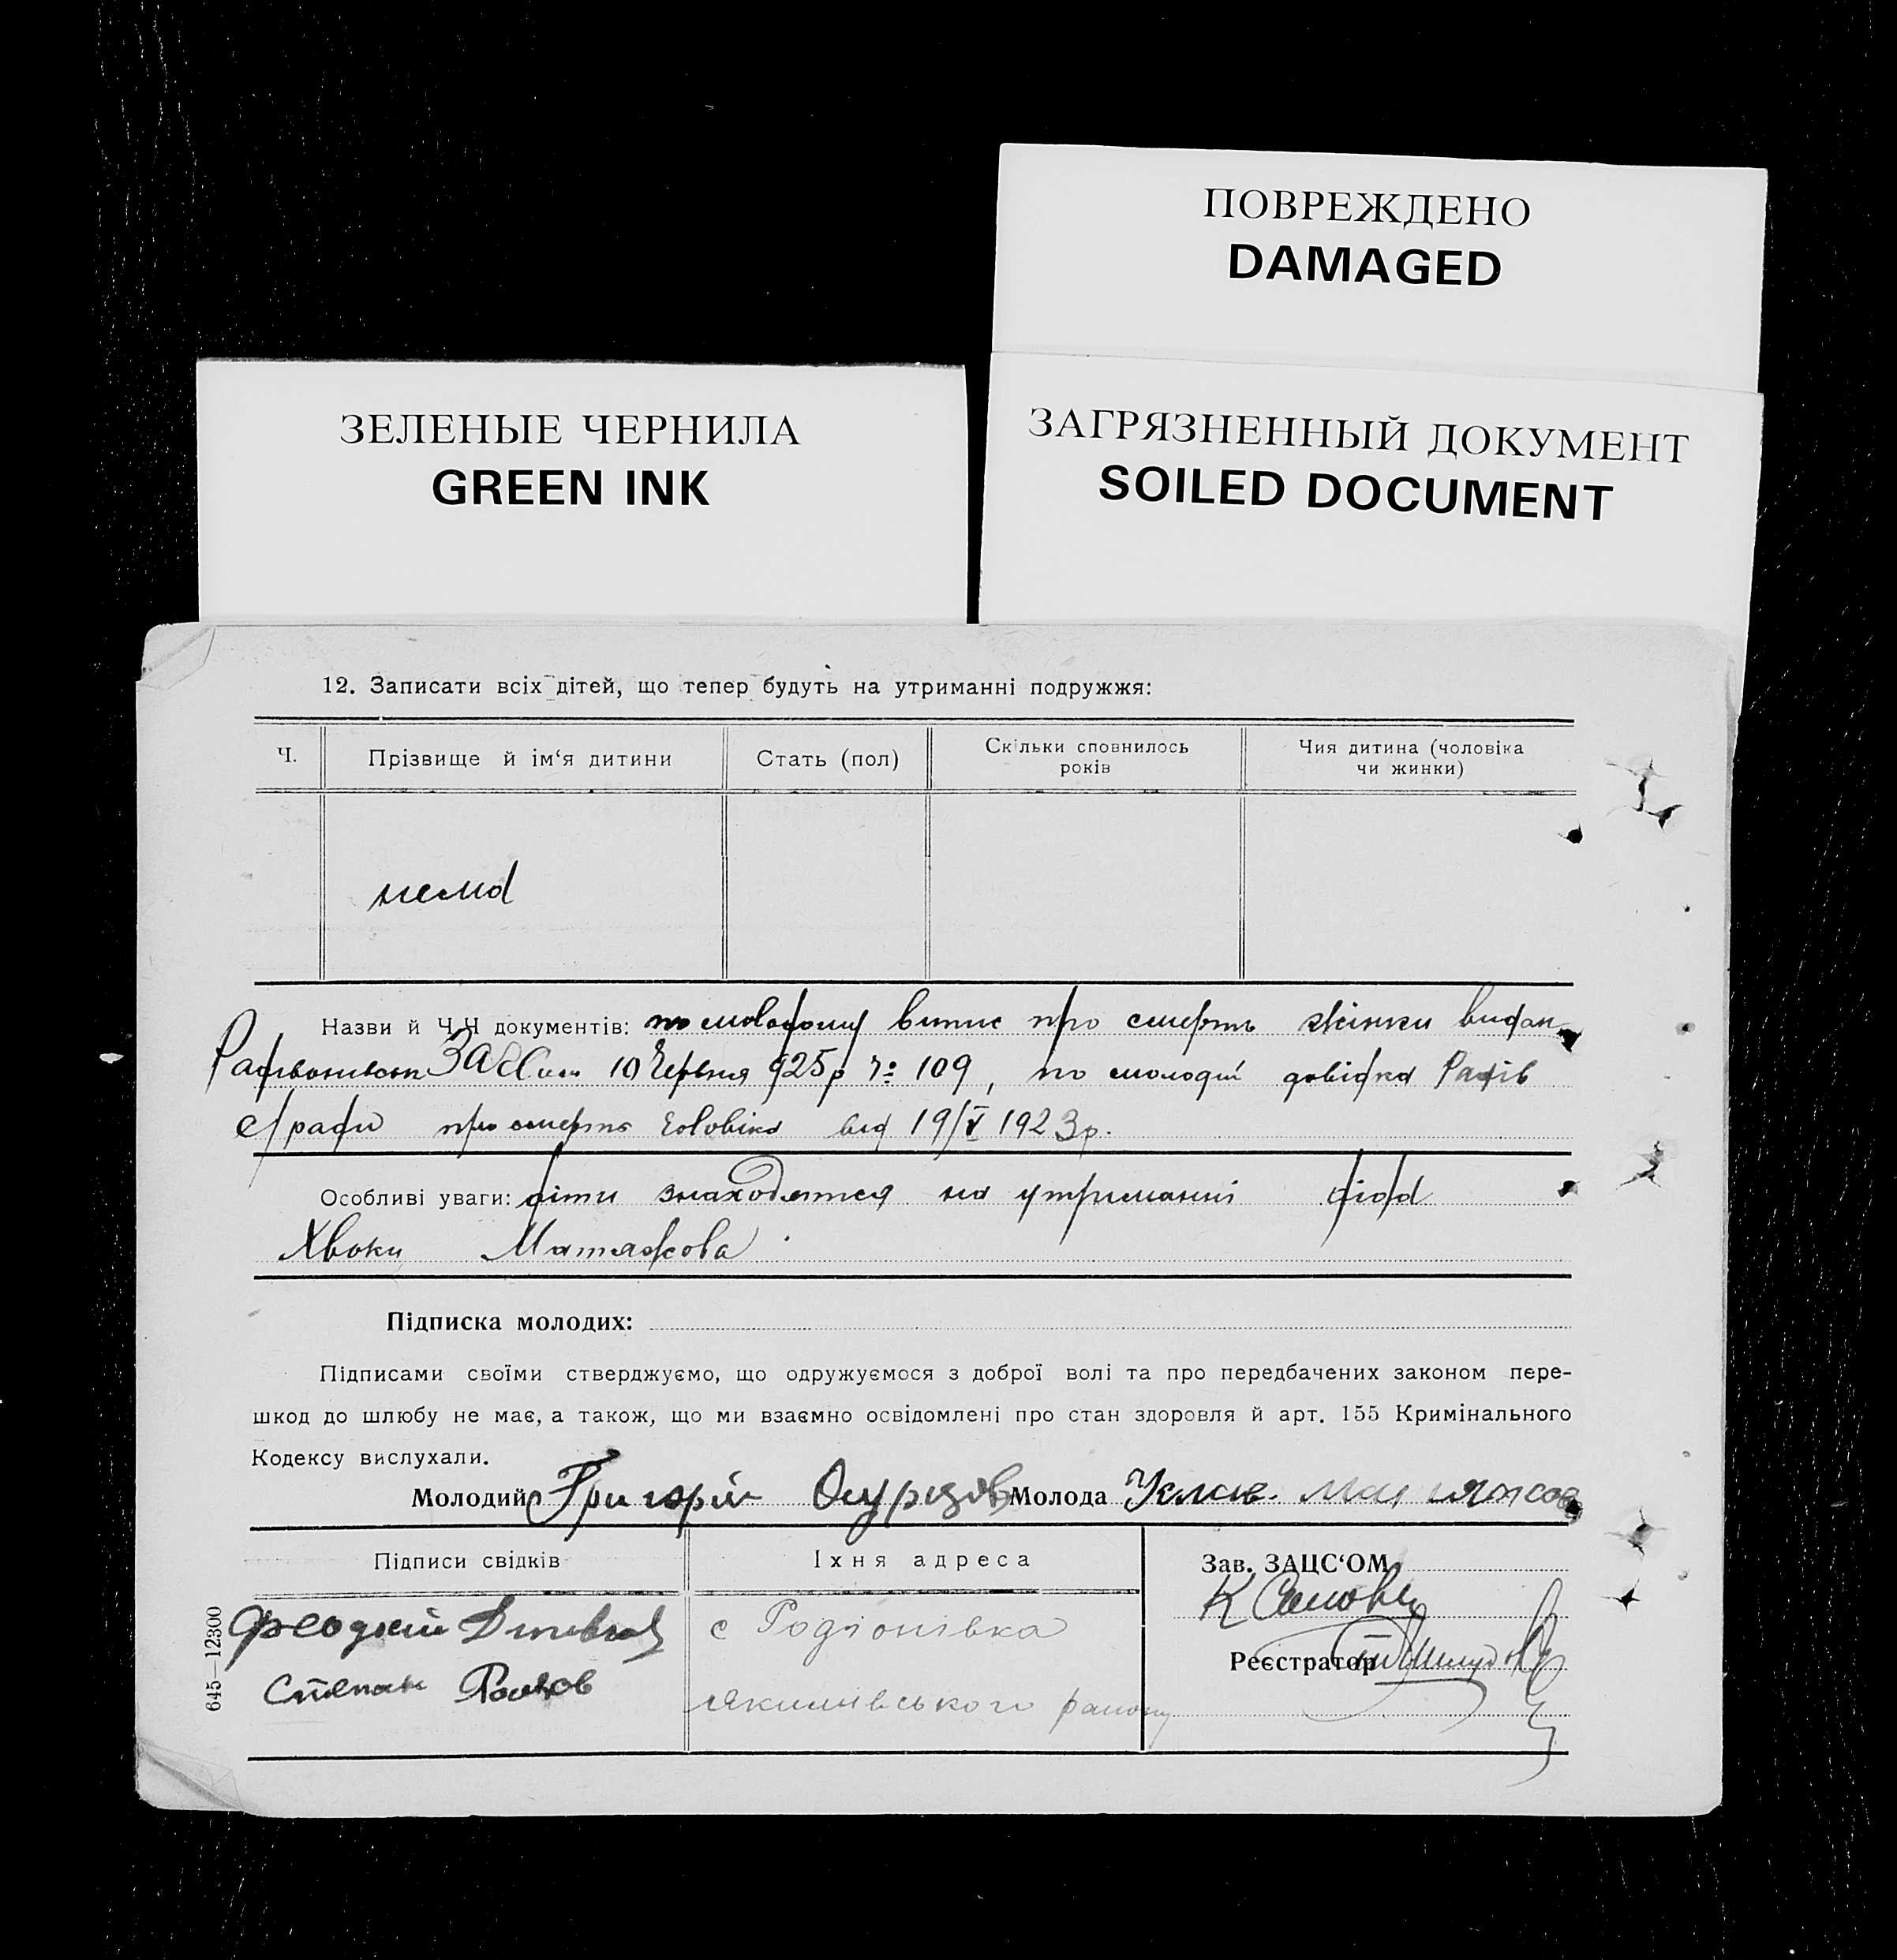 ПОВРЕЖДЕНО
DAMAGED
ЗЕЛЕНЫЕ ЧЕРНИЛА
GREEN INK
ЗАГРЯЗНЕННЫЙ ДОКУМЕНТ
SOILED DOCUMENT
12. Записати всіх дітей, що тепер будуть на утриманні подружжя:
Ч.
Прізвище й ім‘я дитини
Стать (пол)
Скільки сповнилось
років
Чия дитина (чоловіка
чи жинки)
нема
Назви й Ч.Ч документів: по молодому випис про смерть жінки видан
10 Червня 925р № 109, по молодій довідка Радів
с/ради про смерть чоловіка від 19/V 1923р.
Особливі уваги: діти знаходятся на утриманні діда
Матяжова
Підписка молодих:
Підписами своїми стверджуємо, що одружуємося з доброї волі та про передбачених законом пере-
шкод до шлюбу не має, а також, що ми взаємно освідомлені про стан здоровля й арт. 155 Кримінального
Кодексу вислухали.
Молодий Григорій Молода
Підписи свідків
Їхня адреса
Зав. ЗАЦС‘ОМ
с Родіонівка
Реєстратор
Степан
Якимівського району
645—12300